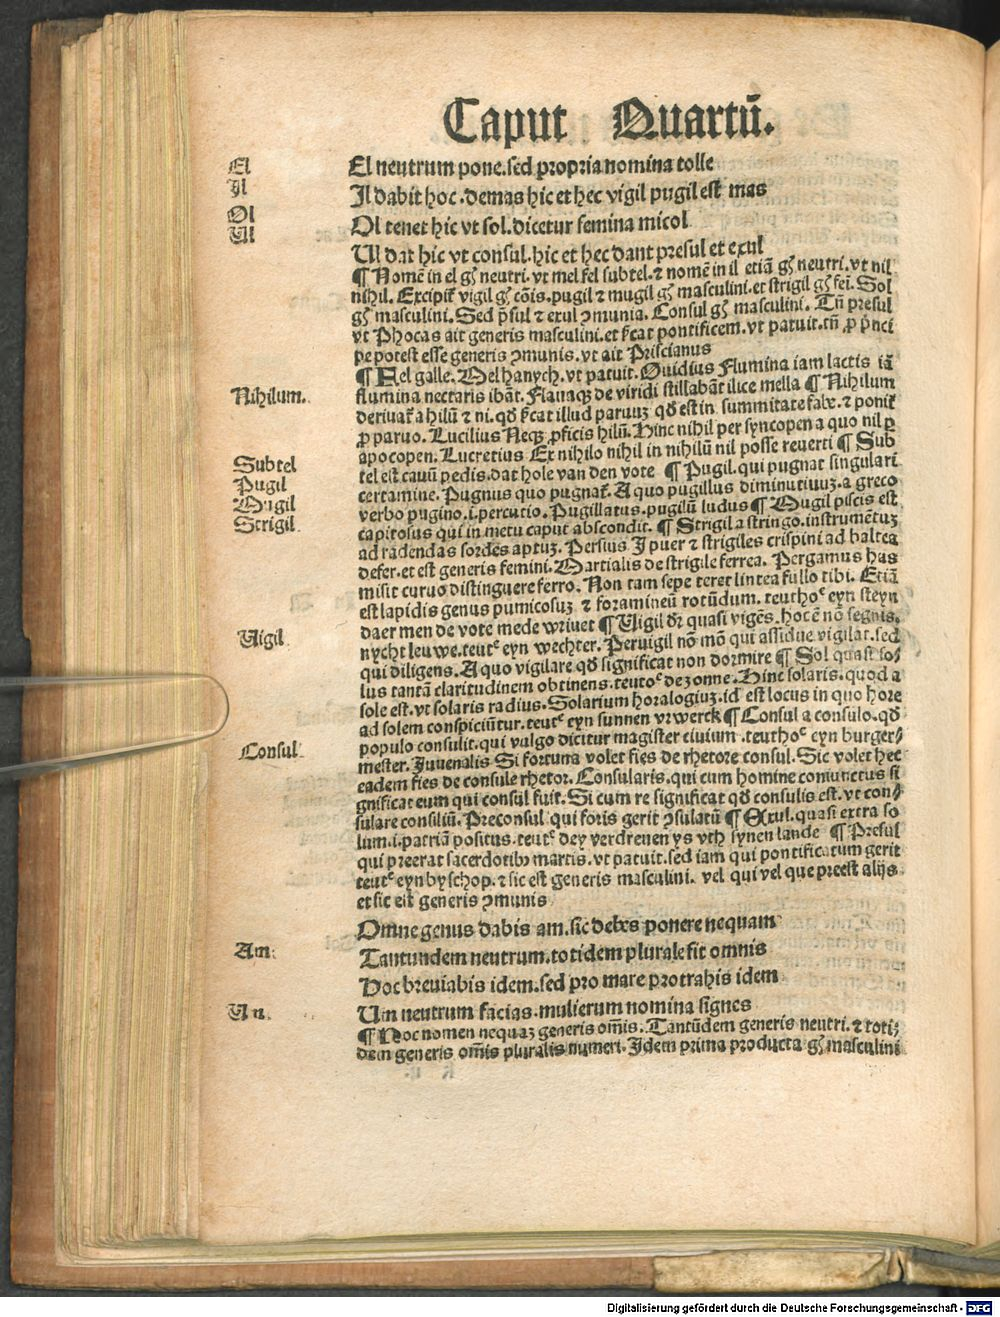 Caput Quartū.
El
El neutrum pone. sed propria nomina tolle
Il
Il dabit hoc. demas hic et hec vigil pugil est mas
Ol
Ol tenet hic vt sol. dicetur femina micol
Ul
Ul dat hic vt consul. hic et hec dant presul et exul
¶ Nomē in el gn̄ neutri. vt mel fel subtel. ⁊ nomē in il etiā gn̄ neutri. vt nil
nihil. Excipit᷑ vigil gn̄ cōis. pugil ⁊ mugil gn̄ masculini. et strigil gn̄ fei. Sol
gn̄ masculini. Sed p̄sul ⁊ exul ꝯmunia. Consul gn̄ masculini. Tn̄ presul
vt Phocas ait generis masculini. et s̄cat pontificem. vt patuit. tn̄ ꝓ p̄nci
pe potest esse generis ꝯmunis. vt ait Priscianus
¶ Fel galle. Mel hanych. vt patuit. Ouidius Flumina iam lactis iā
flumina nectaris ibāt. Flauaqꝫ de viridi stillabāt ilice mella ¶ Nihilum
Nihilum.
deriuat᷑ a hilū ⁊ ni. qd̄ s̄cat illud paruuꝫ qd̄ est in summitate fabe. ⁊ ponit᷑
ꝓ paruo. Lucilius Neqꝫ ꝓficis hilū. Hinc nihil per syncopen a quo nil ꝑ
apocopen. Lucretius Ex nihilo nihil in nihilū nil posse reuerti ¶ Sub
Subtel
tel est cauū pedis. dat hole van den vote ¶ Pugil. qui pugnat singulari
Pugil
certamine. Pugnus quo pugnat᷑. A quo pugillus diminutiuuꝫ. a greco
Mugil
verbo pugino. i. percutio. Pugillatus. pugilū ludus ¶ Mugil piscis est
Strigil
capitosus qui in metu caput abscondit. ¶ Strigil a stringo. instrumētuꝫ
ad radendas sordes aptuꝫ. Persius I puer ⁊ strigiles crispini ad baltea
defer. et est generis femini. Martialis de strigile ferrea. Pergamus has
misit curuo distinguere ferro. Non tam sepe teret lintea fullo tibi. Etiā
est lapidis genus pumicosuꝫ ⁊ foramineū rotūdum. teuthoᶜ eyn steyn
daer men de vote mede wriuet ¶ Uigil dr̄ quasi vigēs. hoc ē nō segnis.
Uigil.
nycht leuwe. teutᶜ eyn wechter. Peruigil nō mō qui assidue vigilat. sed
qui diligens. A quo vigilare qd̄ significat non dormire ¶ Sol quasi so⸗
lus tantā claritudinem obtinens. teutoᶜ de zonne. Hinc solaris. quod a
sole est. vt solaris radius. Solarium horalogiuꝫ. id est locus in quo hore
ad solem conspiciūtur. teutᶜ eyn sunnen vrwerck ¶ Consul a consulo. qd̄
Consul.
populo consulit. qui vulgo dicitur magister ciuium. teuthoᶜ eyn burger⸗
mester. Juuenalis Si fortuna volet fies de rhetore consul. Sic volet hec
eadem fies de consule rhetor. Consularis. qui cum homine coniunctus si
gnificat eum qui consul fuit. Si cum re significat qd̄ consulis est. vt con⸗
sulare consiliū. Preconsul qui foris gerit ꝯsulatū ¶ Exul. quasi extra so
lum. i. patriā positus. teutᶜ dey verdreuen ys vth synen lande ¶ Presul
qui preerat sacerdotibꝫ martis. vt patuit. sed iam qui pontificatum gerit
teutᶜ eyn byschop. ⁊ sic est generis masculini. vel qui vel que preest alijs
et sic est generis ꝯmunis
Omne genus dabis am. sic debes ponere nequam
Am.
Tantundem neutrum. totidem plurale fit omnis
Hoc breuiabis idem. sed pro mare protrahis idem
Um.
Um neutrum facias. mulierum nomina signes
¶ Hoc nomen nequaꝫ generis om̄is. Tantūdem generis neutri. ⁊ toti⸗
dem generis om̄is pluralis numeri. Idem prima producta gn̄ masculini
Digitalisierung gefördert durch die Deutsche Forschungsgemeinschaft - DFG